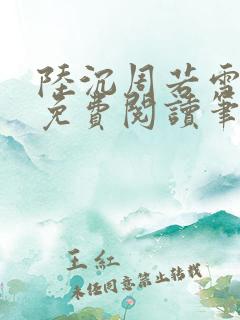 陸沉周若雪
免費閱讀筆
王紅
未经同意禁止转载